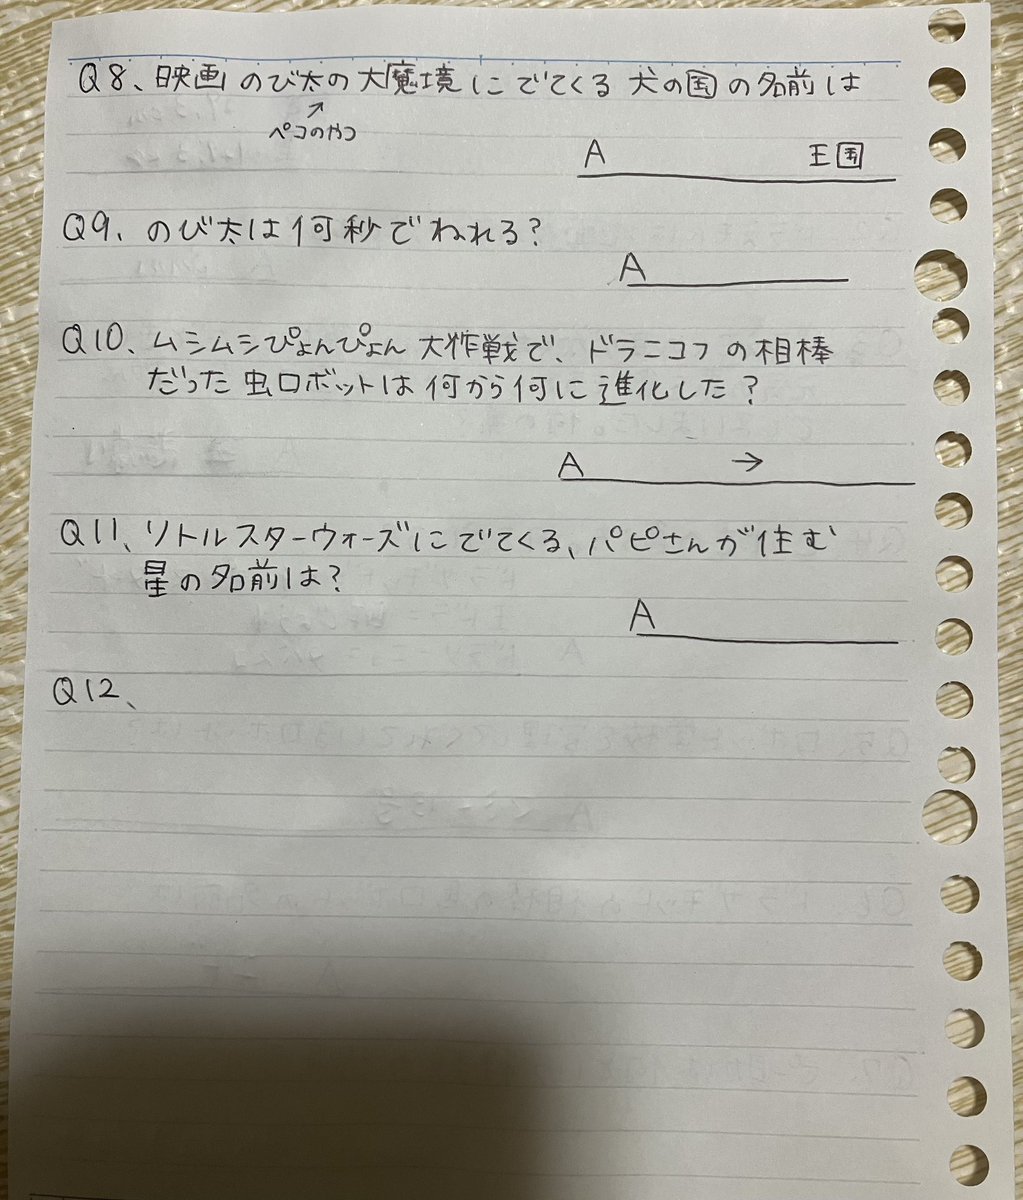 Q8、映画 のび太の大魔境にでてくる 犬の国の名前は
↗
ペコのやつ
A 王国
Q9、のび太は何秒でねれる?
A
Q10、ムシムシぴょんぴょん 大作戦で、ドラニコフの相棒
だった虫ロボットは何から何に進化した?
A →
Q11、リトルスターウォーズにでてくる、パピさんが住む
星の名前は?
A
Q12、